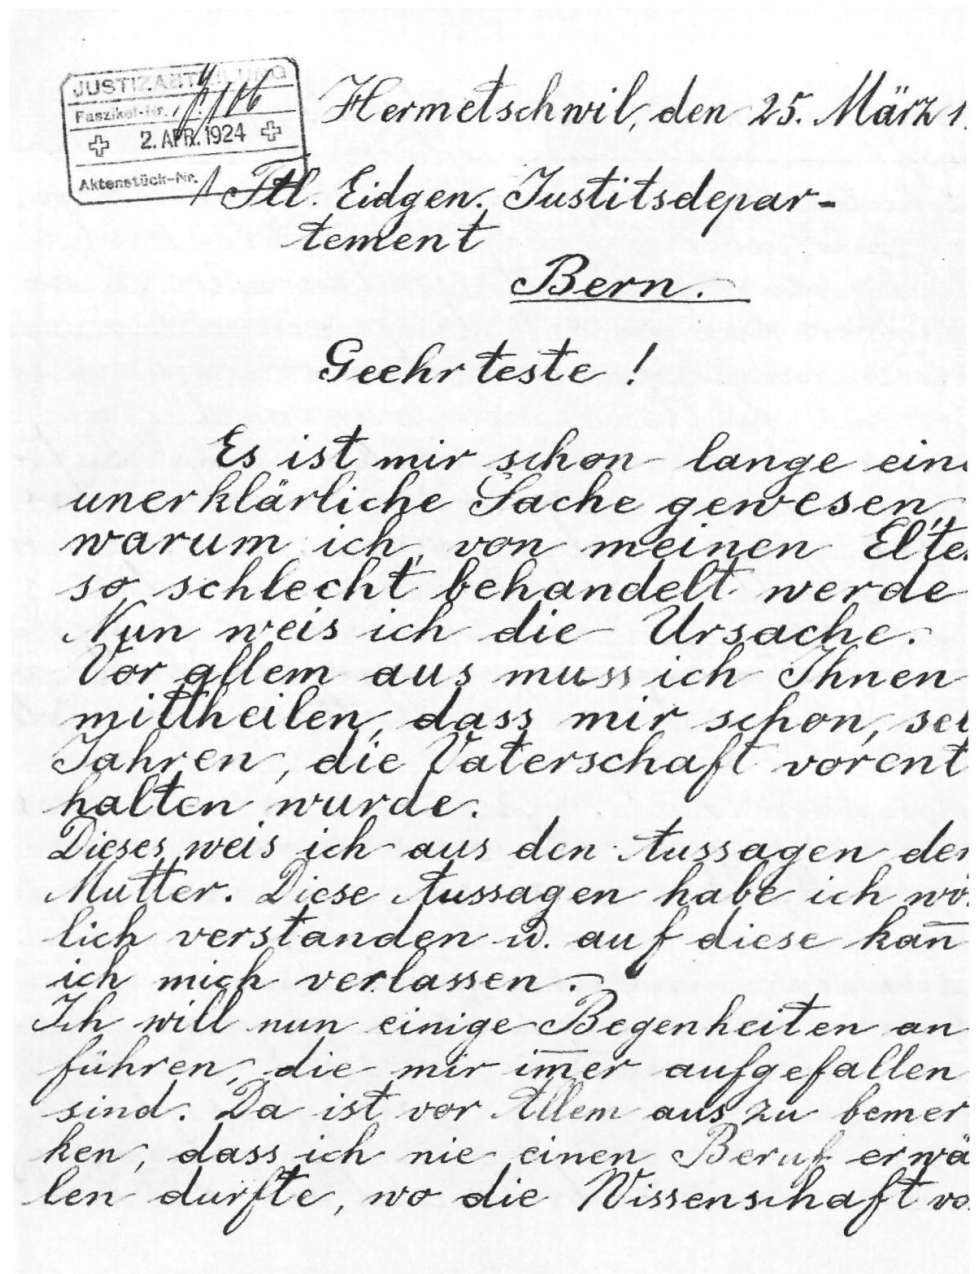 JUSTIZABTEILUNG
Faszikel-Nr.
2. APR. 1924
Aktenstück-Nr. 1
Hermetschwil, den 25. März 1
Ttl. Eidgen. Justitsdepar-
tement
Bern.
Geehrteste!
Es ist mir schon lange ein
unerklärliche Sache gewesen,
warum ich, von meinen Elte
so schlecht behandelt werde
Nun weis ich die Ursache.
Vor allem aus muss ich Ihnen
mittheilen, dass mir schon, sei
Jahren, die Vaterschaft vorent
halten wurde.
Dieses weis ich aus den Aussagen der
Mutter. Diese Aussagen habe ich wö
lich verstanden u. auf diese kan̄
ich mich verlassen.
Ich will nun einige Begenheiten an
führen, die mir im̄er aufgefallen
sind. Da ist vor Allem aus zu bemer
ken, dass ich nie einen Beruf erwä
len durfte, wo die Wissenschaft vo